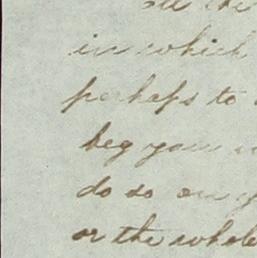 the
in which
perhaps to
beg you
do so on y
or the whole